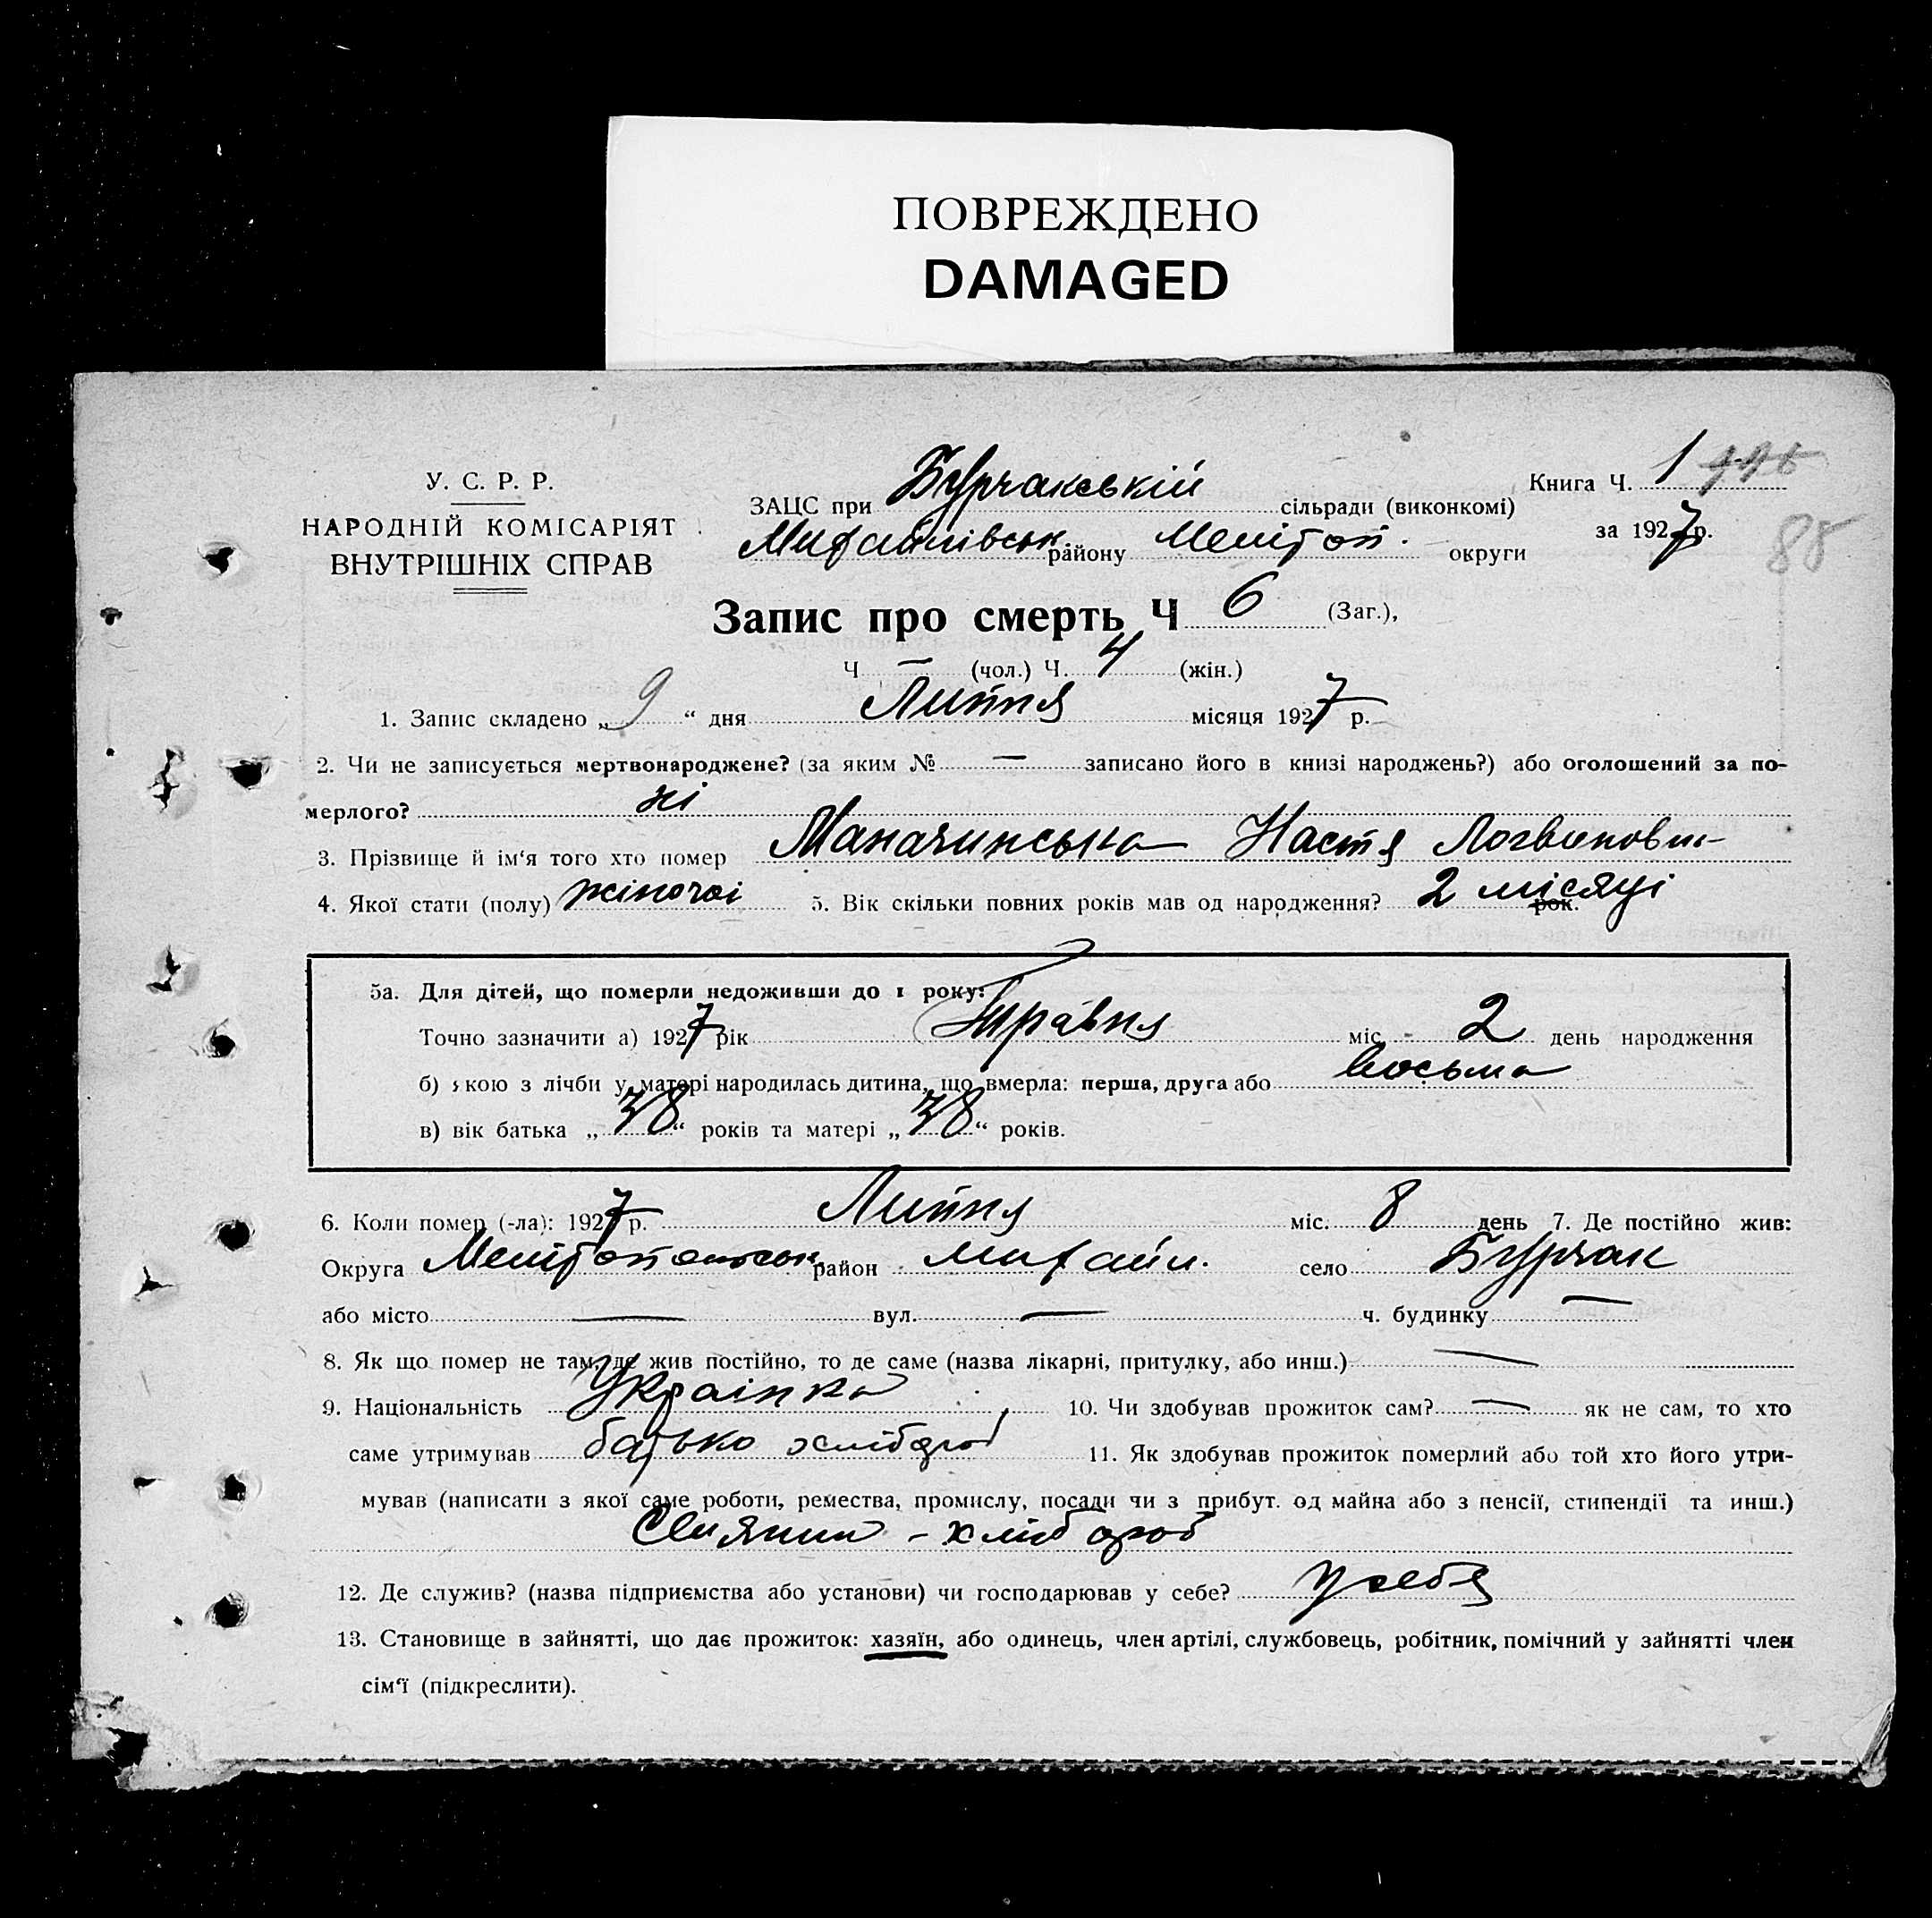 ПОВРЕЖДЕНО
DAMAGED
У. С. Р. Р.
НАРОДНІЙ КОМІСАРІЯТ
ВНУТРІШНІХ СПРАВ
ЗАЦС при Бурчакській сільради (виконкомі)
Михайлівськ. району Мелітоп. округи
Книга Ч. 1
за 1927 р.
88
Запис про смерть Ч 6 (Заг.),
Ч — (чол.) Ч. 4 (жін.)
1. Запис складено „ 9 “ дня Липня місяця 1927 р.
2. Чи не записується мертвонароджене? (за яким № — записано його в книзі народжень?) або оголошений за по-
мерлого? ні
3. Прізвище й ім‘я того хто помер Маначинська Настя Логвиновна
4. Якої стати (полу) жіночої 5. Вік скільки повних років мав од народження? 2 місяці рок.
5а. Для дітей, що померли недоживши до 1 року:
Точно зазначити а) 1927 рік Травня міс. 2 день народження
б) якою з лічби у матері народилась дитина, що вмерла: перша, друга або восьма
в) вік батька „ 38 “ років та матері „ 38 “ років.
6. Коли помер (-ла): 1927 р. Липня міс. 8 день 7. Де постійно жив:
Округа Мелітопольськ. район Михайл. село Бурчак
або місто — вул. — ч. будинку —
8. Як що помер не там, де жив постійно, то де саме (назва лікарні, притулку, або инш.) —
9. Національність Українка 10. Чи здобував прожиток сам? — як не сам, то хто
саме утримував батько хлібороб 11. Як здобував прожиток померлий або той хто його утри-
мував (написати з якої саме роботи, ремества, промислу, посади чи з прибут. од майна або з пенсії, стипендії та инш.)
Селянин - хлібороб
12. Де служив? (назва підприємства або установи) чи господарював у себе? у себя
13. Становище в зайнятті, що дає прожиток: хазяїн, або одинець, член артілі, службовець, робітник, помічний у зайнятті член
сім‘ї (підкреслити).